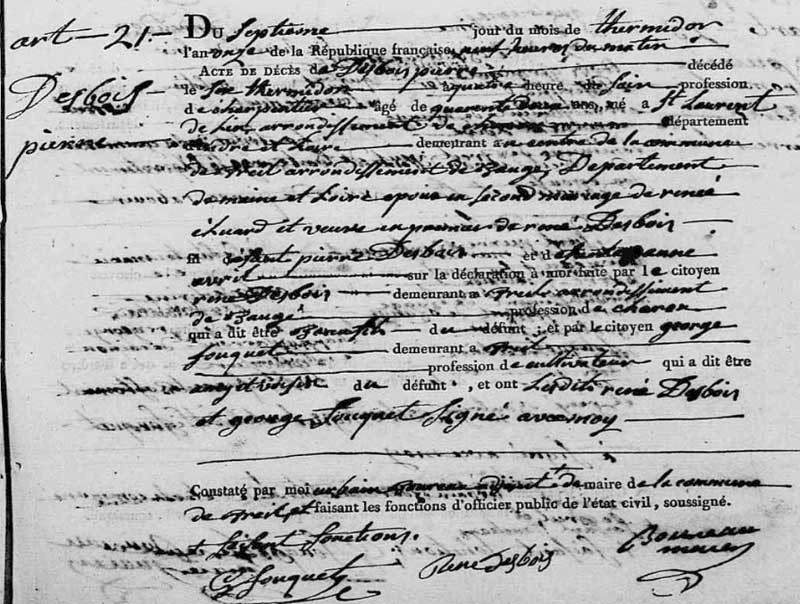 art - 21 -
Desbois
pierre
DU Septiesme jour du mois de thermidor
l'an onze de la République française neuf heures du matin
ACTE DE DÉCÈS de Desbois pierre décédé
le six thermidor à quatre heure du soir profession
de charpentier âgé de quarente deux ans, né a St Laurent
de Lin arrondissement de chinon département
Indre et Loire demeurant a centre de la commune
de Breil arrondissement de Baugé Departement
de maine et Loire epoux en second mariage de reneé
et veuve en premier de rené Desbois
fil defant pierre Desbois et de anne
avril sur la déclaration à moi faite par le citoyen
rené Desbois demeurant a Breil arrondissement
de Baugé profession de
qui a dit être du défunt ; et par le citoyen george
fouquet demeurant a Breil
profession de cultivateur qui a dit être
amy et voisin du défunt, et ont Lesdits rené Desbois
et george fouquet Signé avec moy
Constaté par moi urbain adjoint de maire de la commune
de Breil et faisant les fonctions d'officier public de l'état civil, soussigné.
G fouquet René Desbois